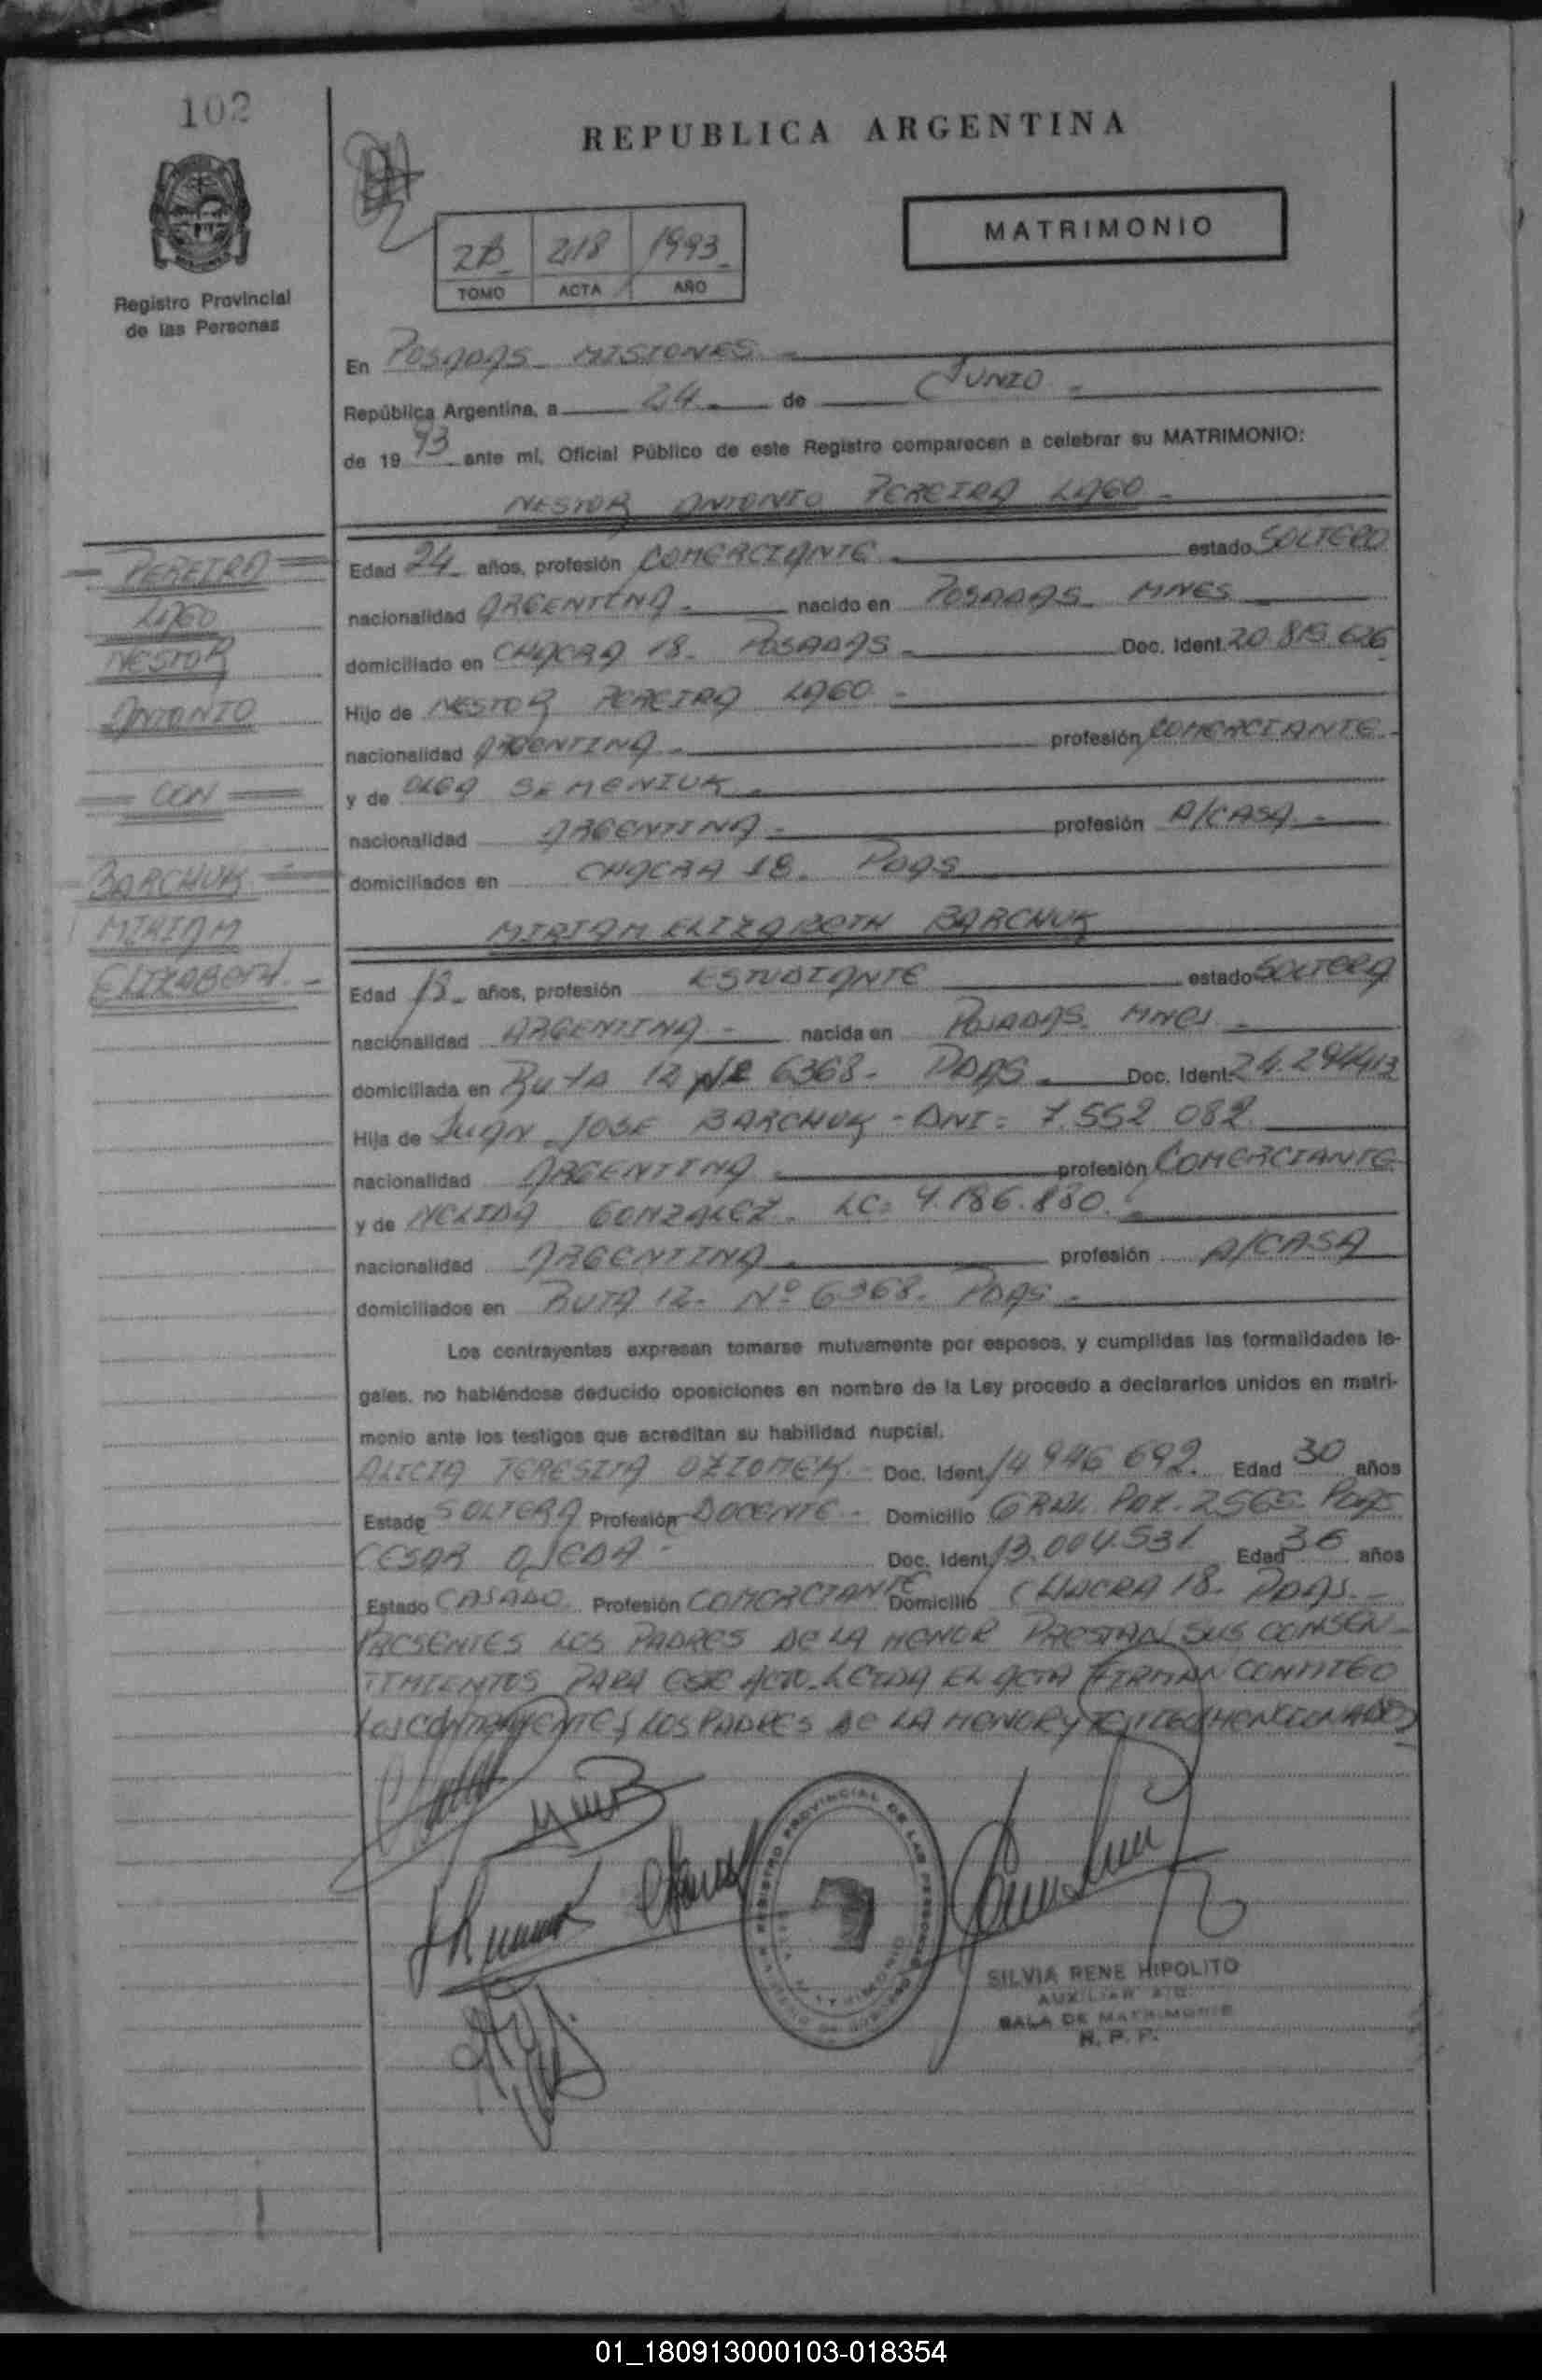 102
REPUBLICA ARGENTINA
MATRIMONIO
2B 218 1993
TOMO ACTA AÑO
Registro Provincial
de las Personas
En POSADAS MISIONES
República Argentina, a 24 de JUNIO
de 19 93 ante mí, Oficial Público de este Registro comparecen a celebrar su MATRIMONIO:
NESTOR ANTONIO PEREIRA LAGO
PEREIRA
LAGO
NESTOR
ANTONIO
CON
BARCHUK
MIRIAM
ELIZABETH
Edad 24 años, profesión COMERCIANTE estado SOLTERO
nacionalidad ARGENTINA nacido en POSADAS MNES
domiciliado en CHACRA 18. POSADAS Doc. Ident. 20.815.626
Hijo de NESTOR PEREIRA LAGO
nacionalidad ARGENTINA profesión COMERCIANTE
y de OLGA SEMENIUK
nacionalidad ARGENTINA profesión A/CASA
domiciliados en CHACRA 18. PDAS
MIRIAM ELIZABETH BARCHUK
Edad años, profesión ESTUDIANTE estado SOLTERA
nacionalidad ARGENTINA nacida en POSADAS MNES
domiciliada en RUTA 12 Nº 6368. PDAS Doc. Ident.
Hija de JUAN JOSE BARCHUK - DNI: 7.552 082
nacionalidad ARGENTINA profesión COMERCIANTE
y de NELIDA GONZALEZ. LC: 4.186.880.
nacionalidad ARGENTINA profesión A/CASA
domiciliados en RUTA 12 - Nº 6368. PDAS
Los contrayentes expresan tomarse mutuamente por esposos, y cumplidas las formalidades le-
gales, no habiéndose deducido oposiciones en nombre de la Ley procedo a declararlos unidos en matri-
monio ante los testigos que acreditan su habilidad nupcial.
ALICIA TERESITA OZIOMEK Doc. Ident. 14 946 692. Edad 30 años
Estado SOLTERA Profesión DOCENTE - Domicilio GRAL PAZ. 2565 PDAS
CESAR OJEDA - Doc. Ident. 13.004.531 Edad 36 años
Estado CASADO Profesión COMERCIANTE Domicilio CHACRA 18. PDAS.
PRESENTES LOS PADRES DE LA MENOR PRESTAN SUS CONSEN-
TIMIENTOS PARA ESTE ACTO. LEIDA EL ACTA FIRMAN CONMIGO
LOS CONTRAYENTES LOS PADRES DE LA MENOR Y TESTIGOS MENCIONADOS
REGISTRO PROVINCIAL DE LAS PERSONAS
MATRIMONIO
SILVIA RENE HIPOLITO
AUXILIAR
SALA DE MATRIMONIO
R. P. P.
01_180913000103-018354